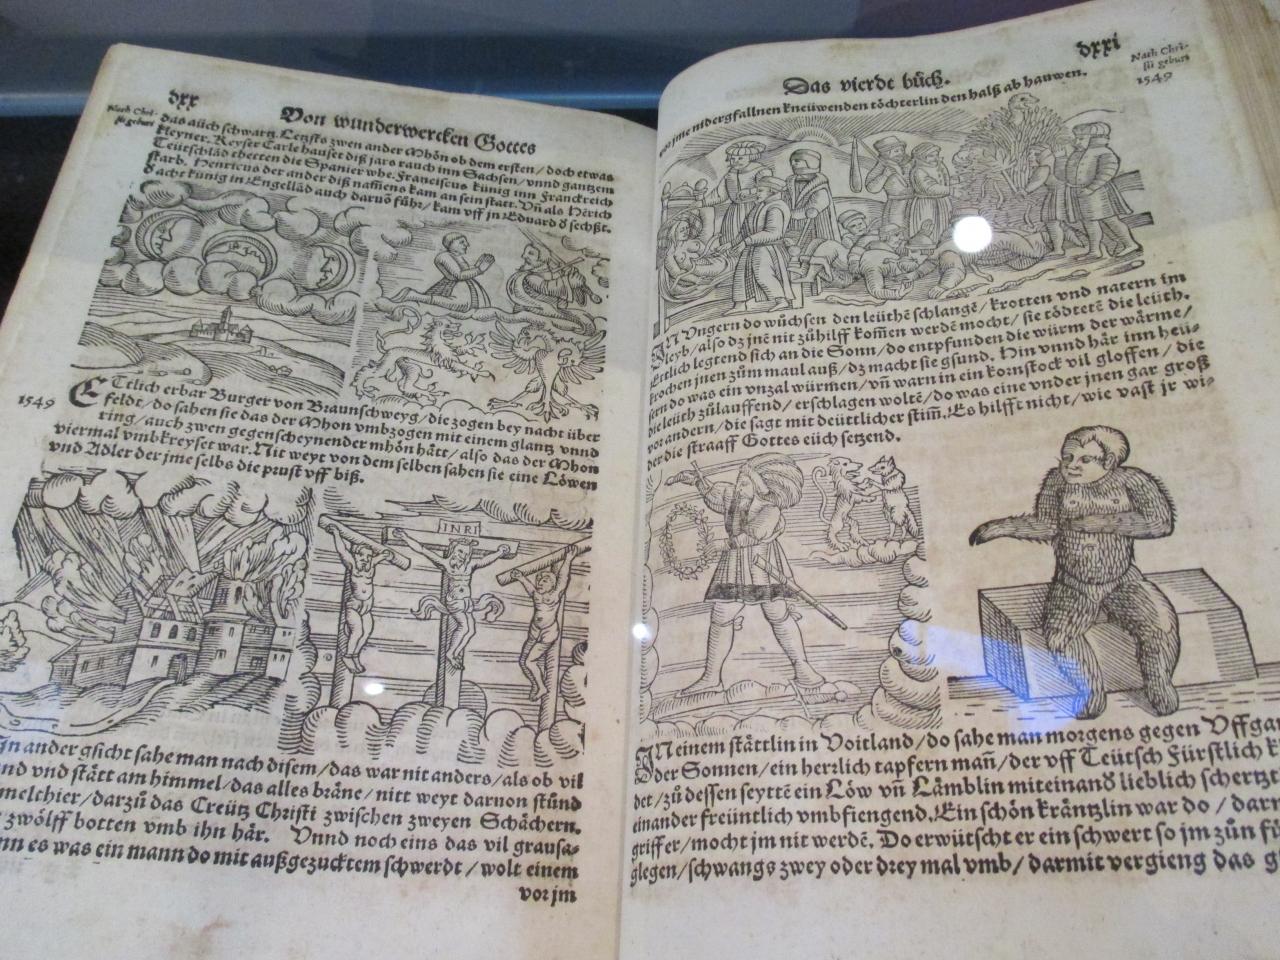 dxx
Von wunderwercken Gottes
Nach Chri-
sti geburt
das auch schwartz. Letsts zwen ander Mhön ob dem ersten / doch etwas
kleyner. Keyser Carle hauset diß jars rauch inn Sachsen / vnnd gantzem
Teütschlād thetten die Spanier whe. Franciscus künig inn Franckreich
starb. Henricus der ander diß nam̄ens kam an sein statt. Vn̄ als Hērich
d acht künig in Engellād auch daruō fůhr / kam vff jn Eduard ð sechßt.
1549
ETtlich erbar Burger von Braunschweyg / die zogen bey nacht über
feldt / do sahen sie das der Mhon vmbzogen mit einem glantz vnnd
ring / auch zwen gegenscheynender mhön hātt / also das der Mhon
viermal vmbkreyset war. Nit weyt von dem selben sahen sie eine Löwen
vnd Adler der jme selbs die prust vff biß.
INRI
In ander gsicht sahe man nach disem / das war nit anders / als ob vil
nd vnd stätt am himmel / das alles bräne / nitt weyt darnon stůnd
melthier / darzů das Creütz Christi zwischen zweyen Schächern.
zwölff botten vmb ihn här. Vnnd noch eins das vil grausa-
nn es was ein mann do mit außgezucktem schwerdt / wolt einem
vor jm
Das vierdt bůch.
dxxi
Nach Chri-
sti geburt
1549
vor jme nidergfallnen kneüwenden töchterlin den halß ab hauwen.
IN Vngern do wůchsen den leüthē schlangē / krotten vnd natern im
leyb / also dz jnē nit zůhilff kom̄en werdē mocht / sie tödtetē die leüth.
Ettlich legtend sich an die Sonn / do entpfunden die würm der wärme /
krochen jnen zům maul auß / dz macht sie gsund. Hin vnnd här inn heü-
sern do was ein vnzal würmen / vn̄ warn in ein kornstock vil gloffen / die
die leüth zůlauffend / erschlagen woltē / do was eine vnder jnen gar groß
vor andern / die sagt mit deüttlicher stim̄ / Es hilfft nicht / wie vast jr wi-
der die straaff Gottes eüch setzend.
IN einem stättlin in Voitland / do sahe man morgens gegen Vffgan
der Sonnen / ein herzlich tapfern man̄ / der vff Teütsch Fürstlich k
det / zů dessen seyttē ein Löw vn̄ Lämblin miteinand lieblich schertzt
einander freüntlich vmbfiengend. Ein schön kräntzlin war do / darn
griffer / mocht jm nit werdē. Do erwütscht er ein schwert so jm zůn fü
glegen / schwangs zwey oder drey mal vmb / darmit vergieng das g